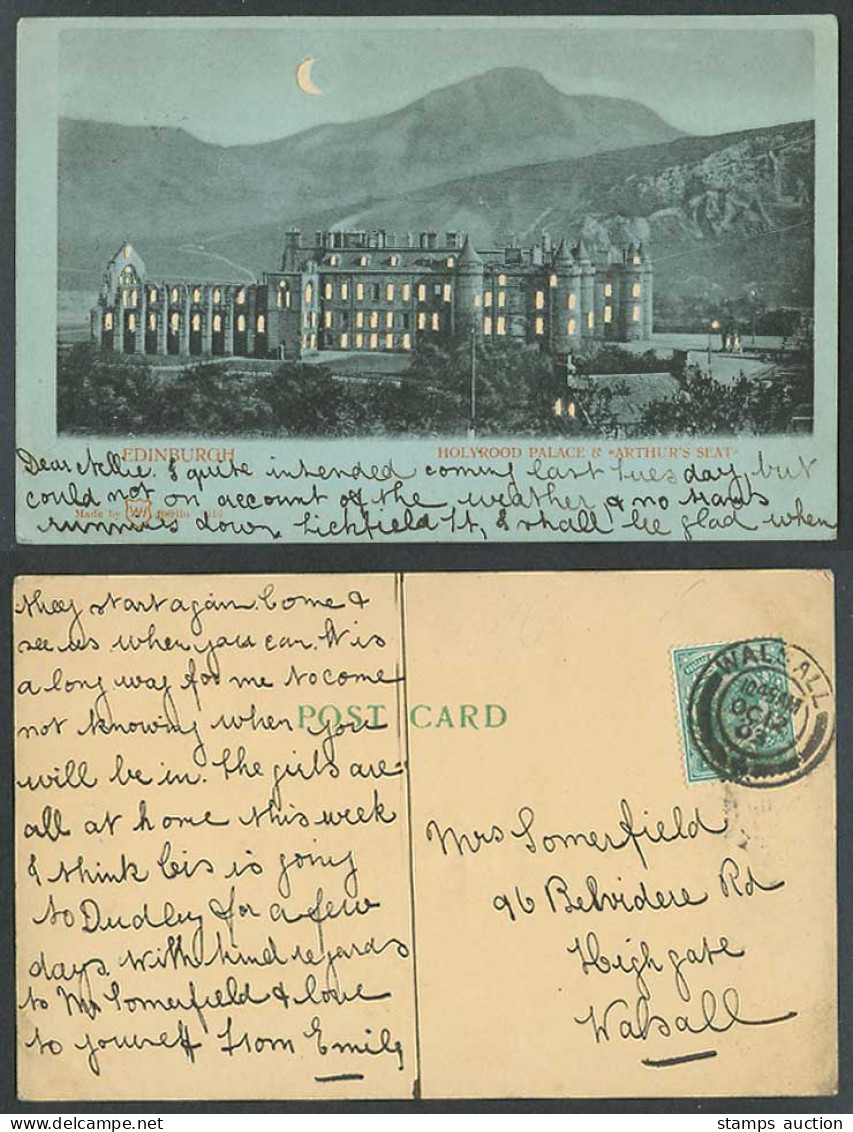 EDINBURGH
HOLYROOD PALACE & "ARTHUR'S SEAT"
Dear Nellie. I quite intended coming last Tuesday, but
could not on account of the weather, & no trams
Made by WH Berlin
running down Lichfield St, I shall be glad when
they start again. Come &
see us when you can. It is
a long way for me to come
not knowing when you
will be in. The girls are
all at home this week
I think Cis is going
to Dudley for a few
days. With kind regards
to Mr Somerfield & love
to yourself from Emily
POST CARD
WALSALL
10.45AM
OC 12
03
Mrs Somerfield
96 Belvidere Rd
Highgate
Walsall
stamps auction